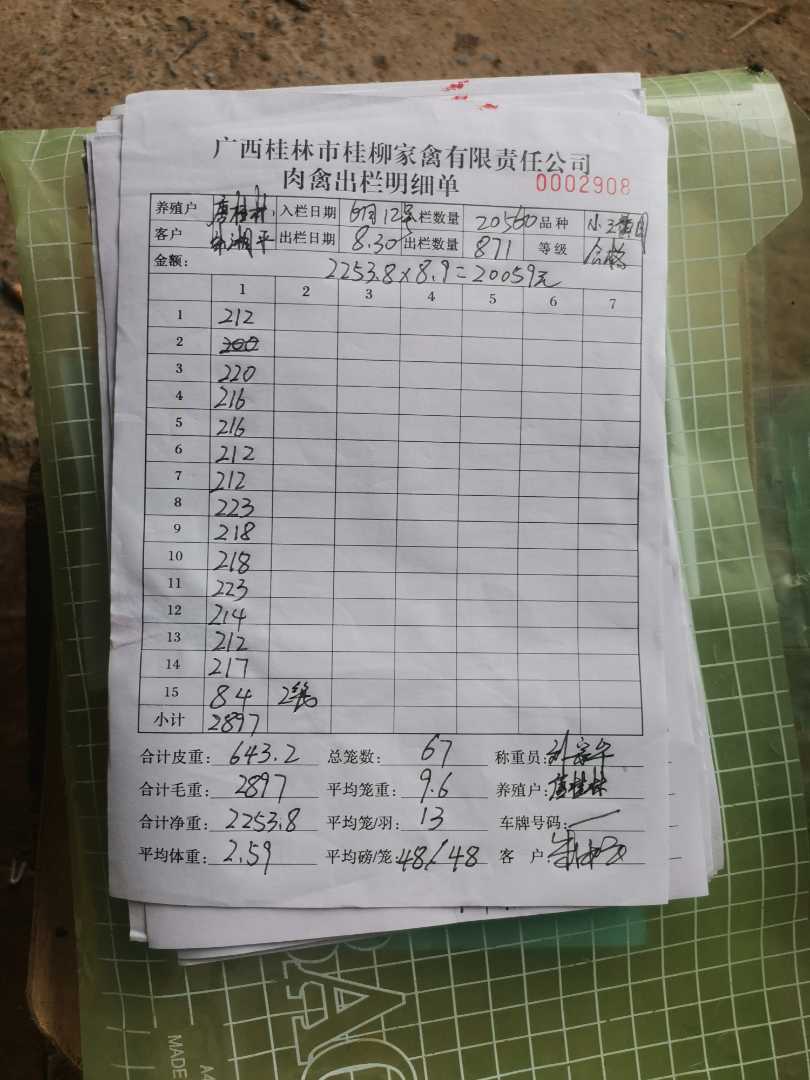 广西桂林市桂柳家禽有限责任公司
肉禽出栏明细单 0002908
养殖户 唐桂林 入栏日期 6月12号 栏数量 20560 品种
客户 湘平 出栏日期 8.30 出栏数量 871 等级 合格
金额: 2253.8×8.9=20059元
1 2 3 4 5 6 7
1 212
2 200
3 220
4 216
5 216
6 212
7 212
8 223
9 218
10 218
11 223
12 214
13 212
14 217
15 84 2笼
小计 2897
合计皮重: 643.2 总笼数: 67 称重员:
合计毛重: 2897 平均笼重: 9.6 养殖户: 唐桂林
合计净重: 2253.8 平均笼/羽: 13 车牌号码: 一
平均体重: 2.59 平均磅/笼: 48/48 客 户:
A4
MADE